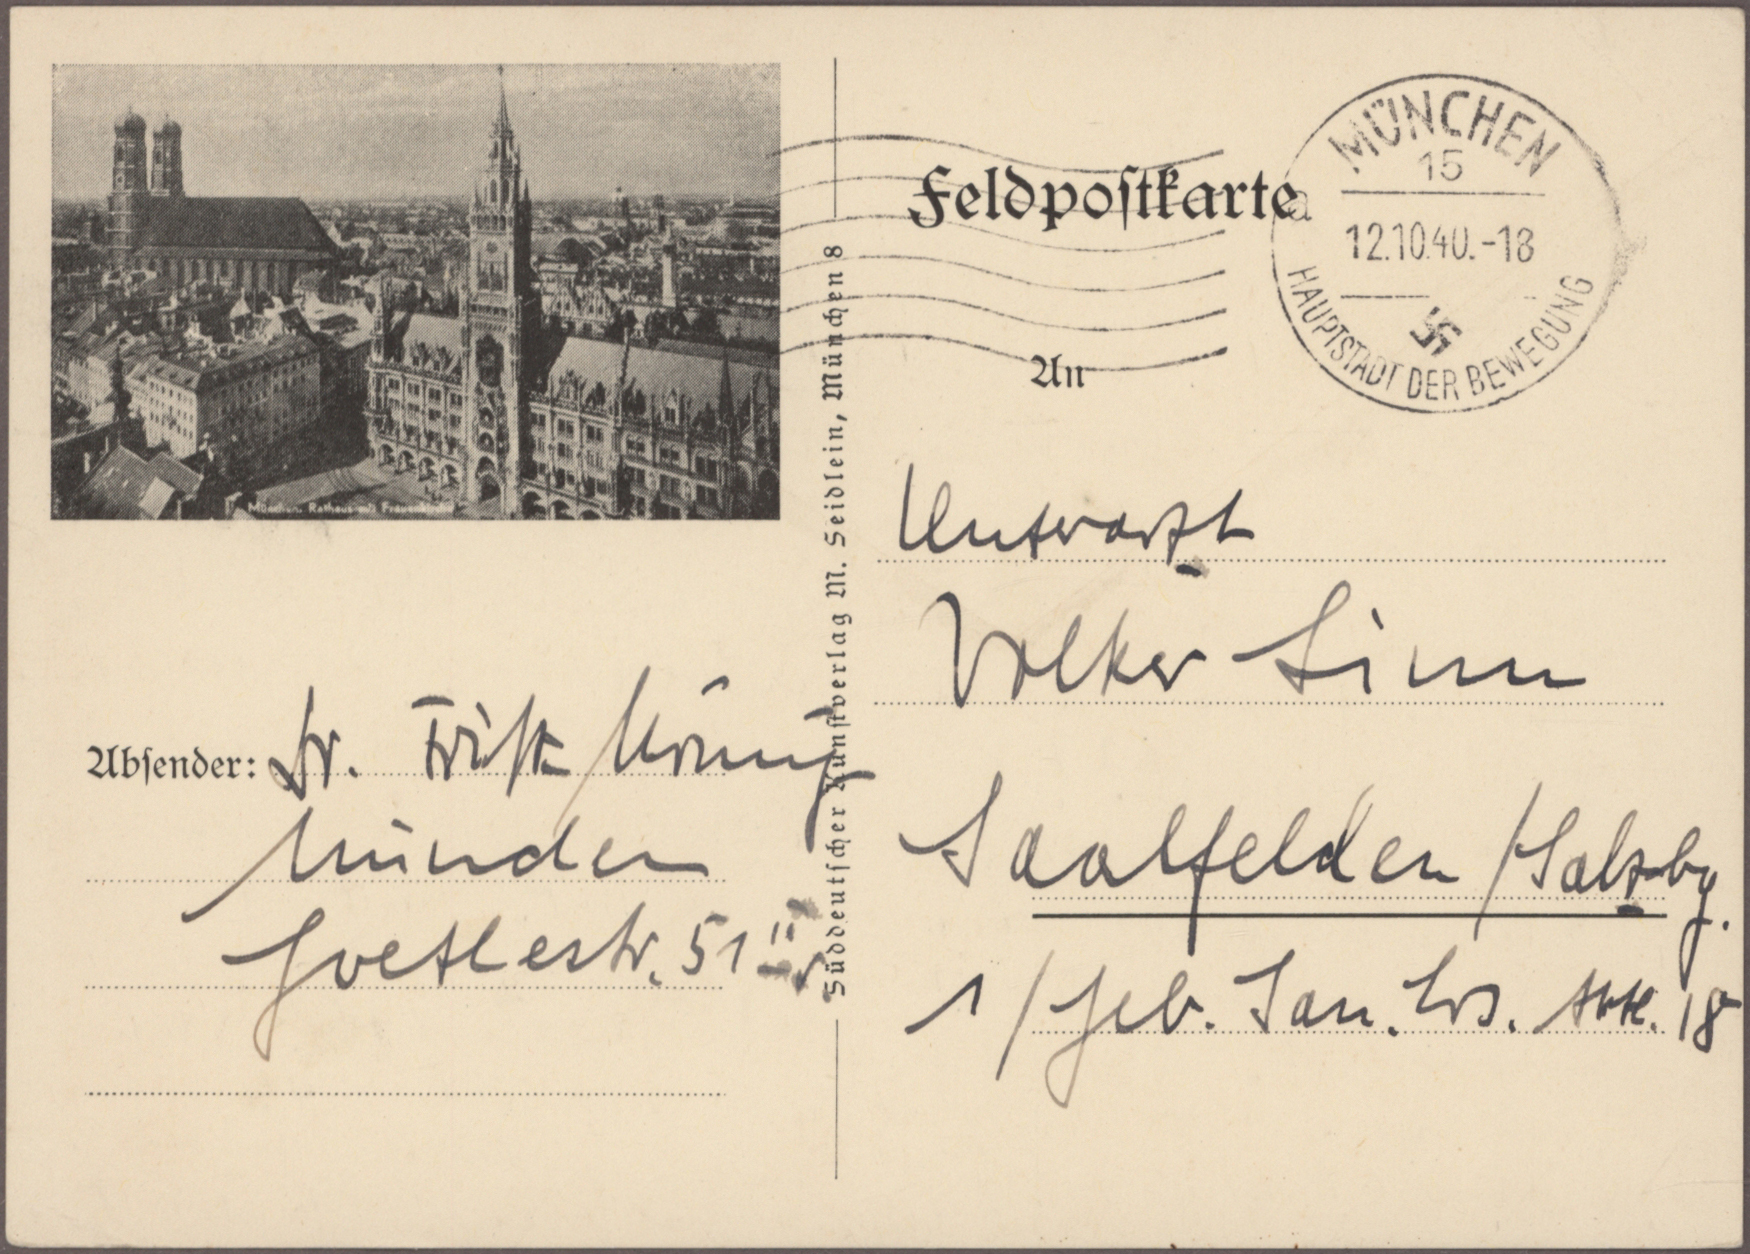 München. Rathaus mit Frauenkirche
Feldpostkarte
MÜNCHEN
15
a
12.10.40.-18
HAUPTSTADT DER BEWEGUNG
An
Unterarzt
Volker Sinn
Saalfelden / Salzbg.
1 / Geb. San. Ers. Abt. 18
Absender: Dr. Fritz
München
Goethestr. 51
Süddeutscher Kunstverlag M. Seidlein, München 8